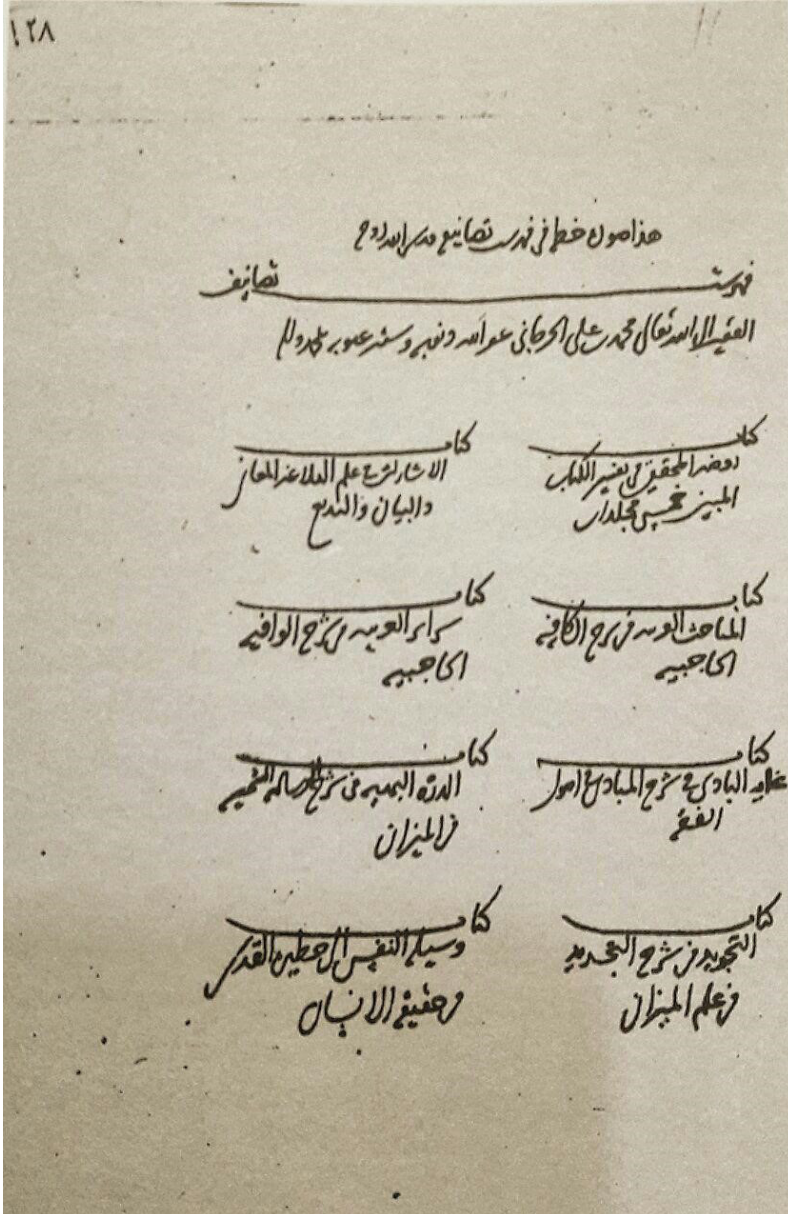 ١٢٨
هذا صورة خطه في فهرست تصانيفه قدس الله روحه
فهرست تصانيف
الفقير الى الله تعالى محمد بن علي الجرجاني عفا الله عن ذنوبه وستر عيوبه
كتاب
روضة المحققين في تفسير الكتاب
المبين خمس مجلدات
كتاب
الاشارات في علم البلاغة المعاني
والبيان والبديع
كتاب
المباحث العربيه في شرح الكافيه
الحاجبيه
كتاب
العربيه في شرح الوافيه
الحاجبيه
كتاب
غايه البادى في شرح المبادى في اصول
الفقه
كتاب
الدره البهيه في شرح الرساله الشمسيه
في الميزان
كتاب
في شرح التجريد
في علم الميزان
كتاب
وسيله النفس الى حظيره القدس
في حقيقه الانسان